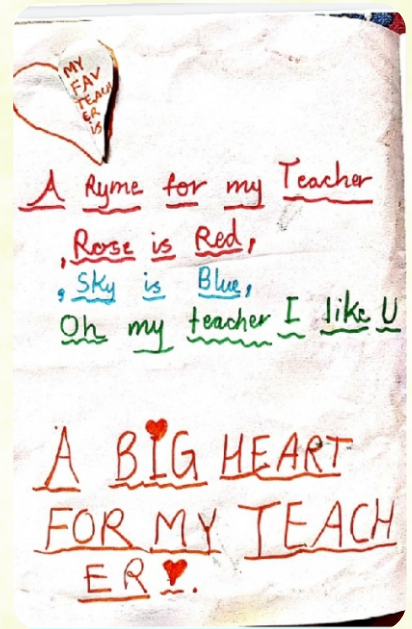 MY
FAV
TEACH
ER
IS
A Ryme for my Teacher
, Rose is Red,
, Sky is Blue,
Oh my teacher I like U
A BIG HEART
FOR MY TEACH
ER.